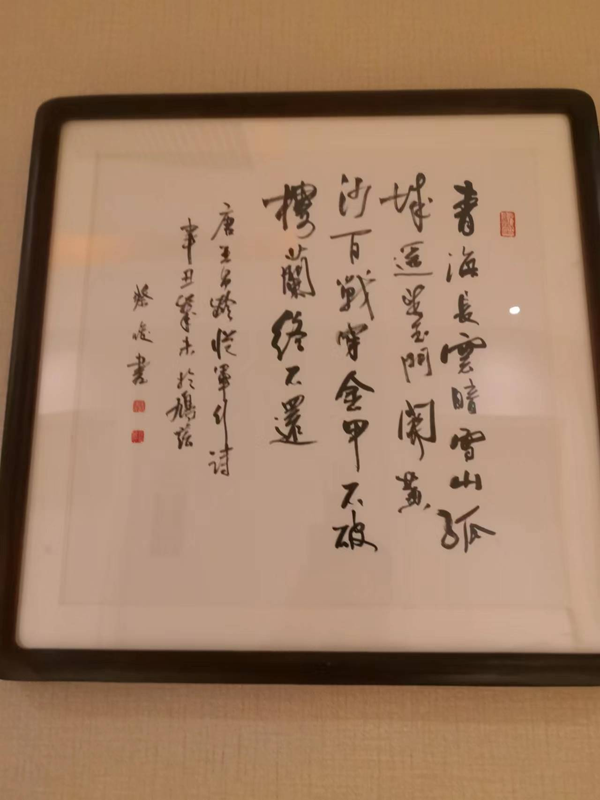 青海長雲暗雪山孤
城遥望玉門關黄
沙百戰穿金甲不破
樓蘭終不還
唐王昌齡從軍行詩
辛丑歲末於鳩兹
蔡俊書